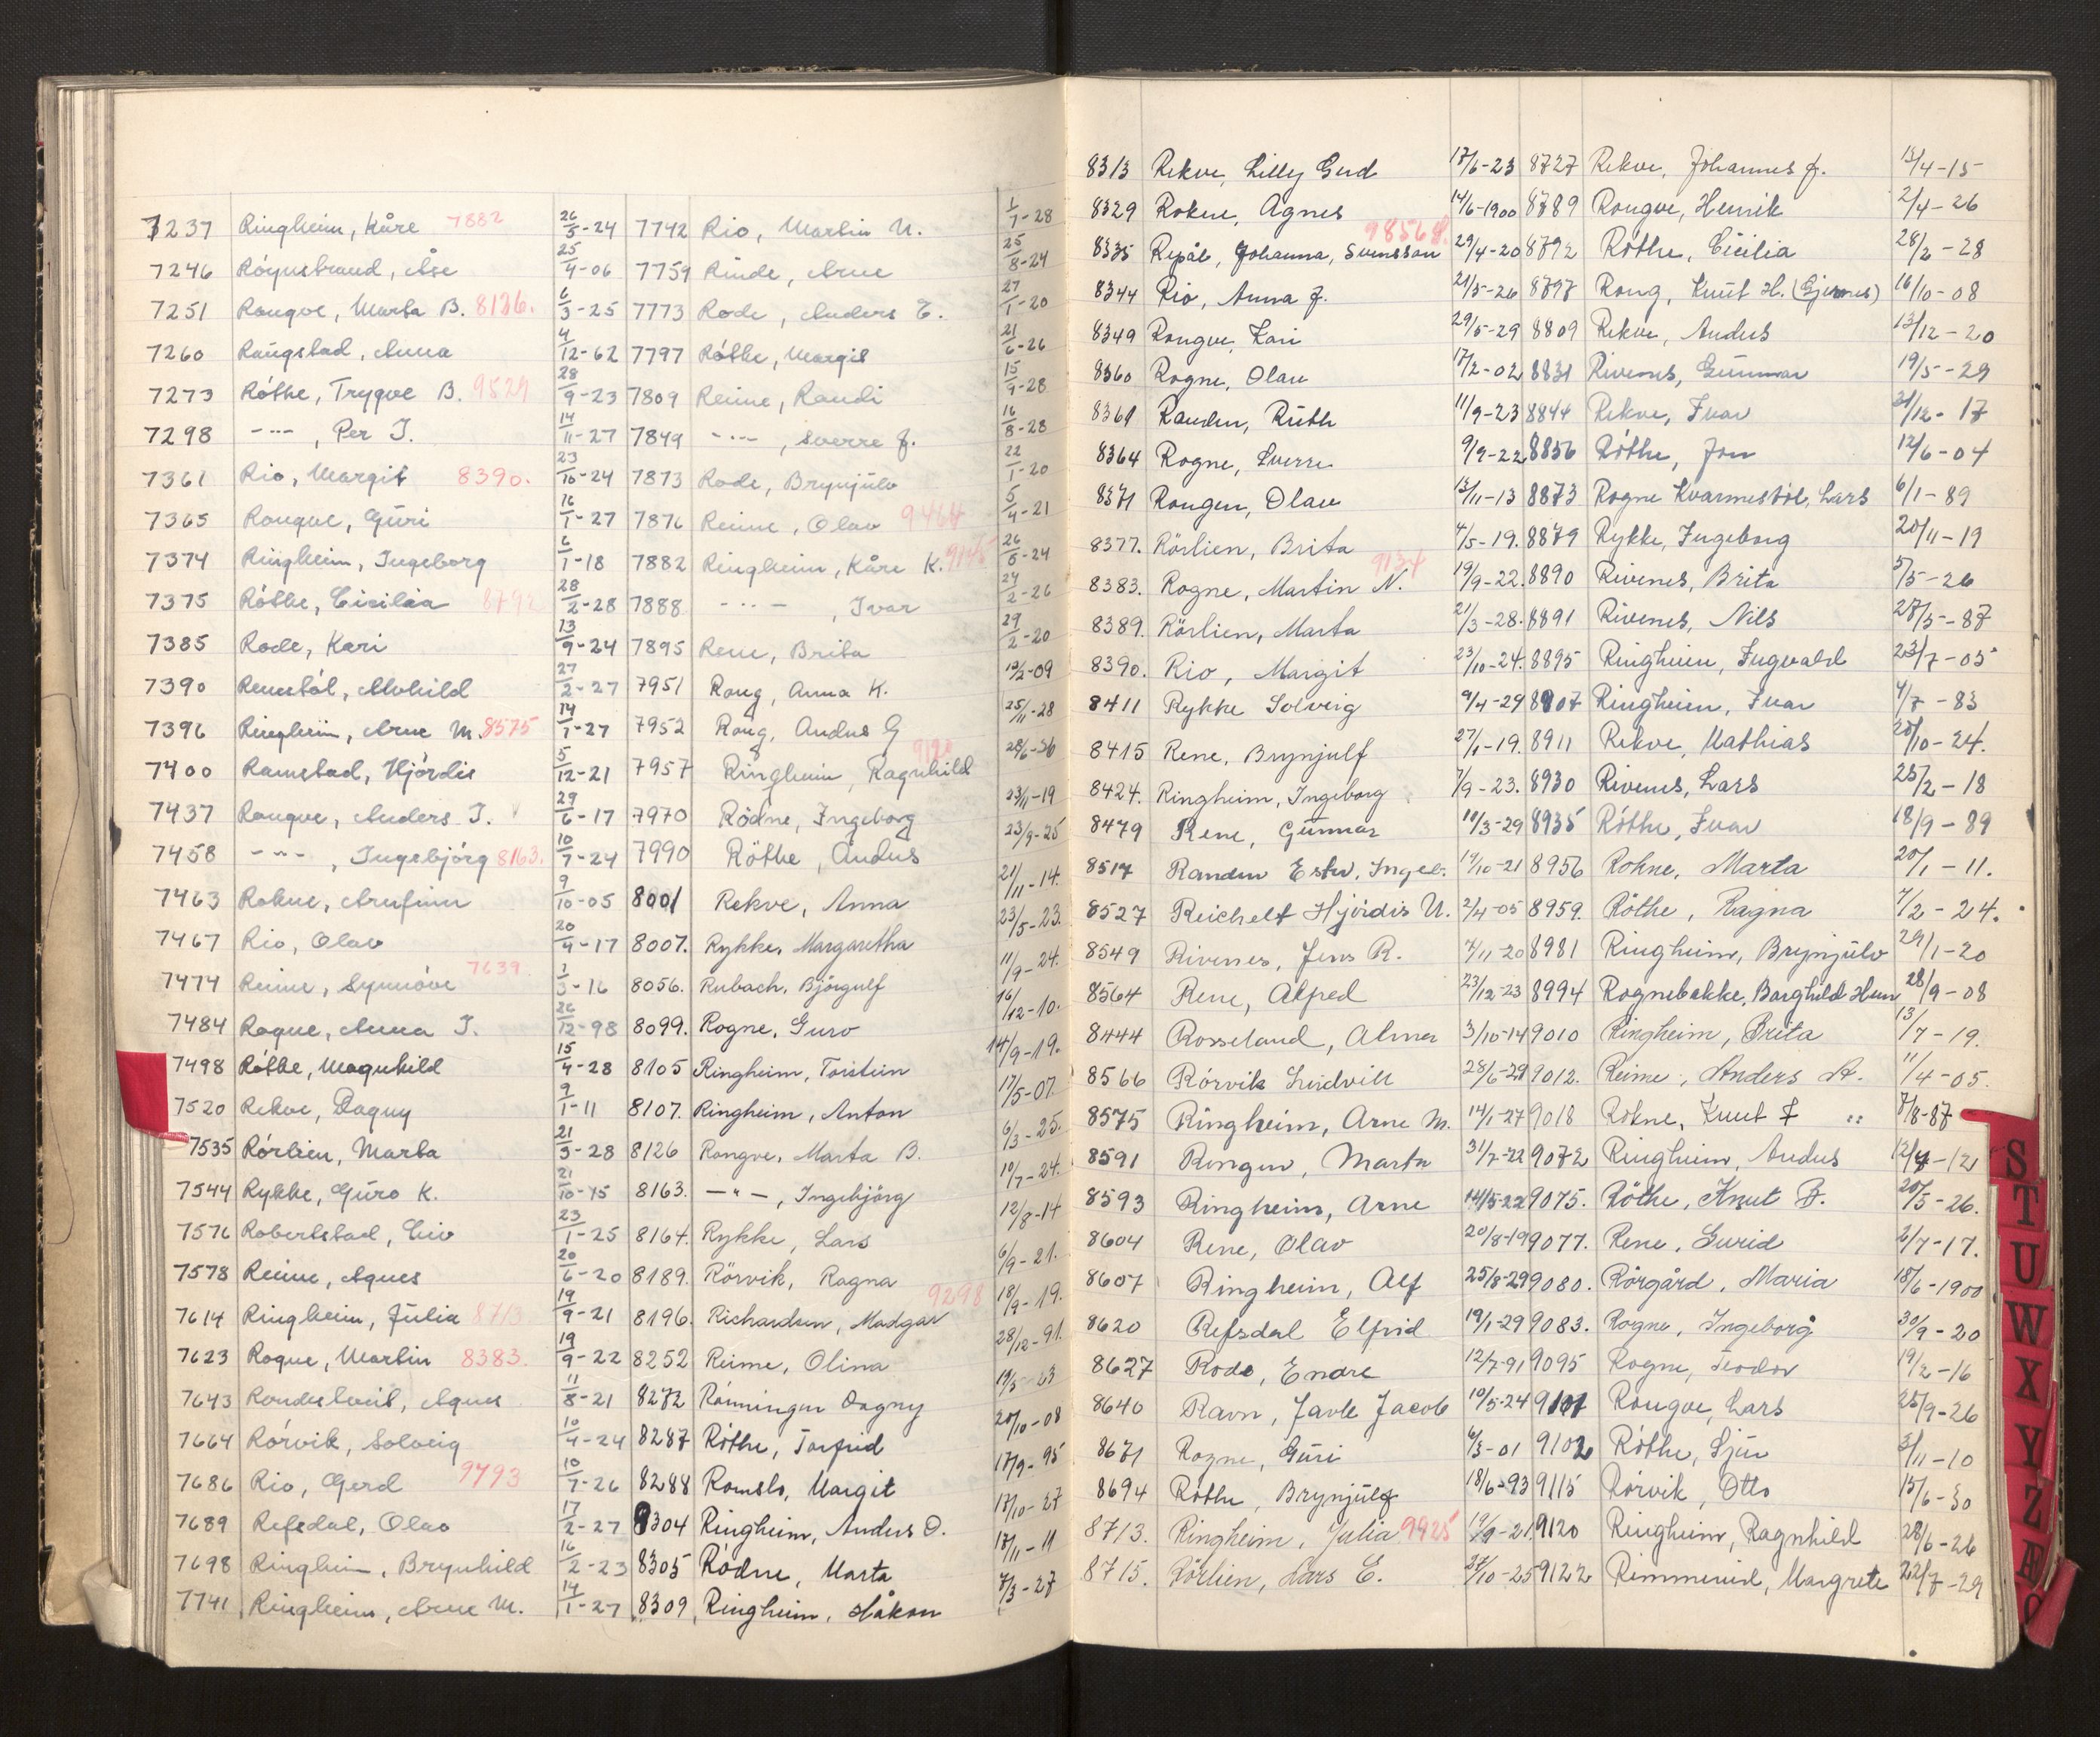 7237 Ringheim, Kåre 7882 26/5-24
7246 Röynstrand, Åse 25/4-06
7251 Rongve, Marta B. 8126. 6/3-25
7260 Raugstad, Anna 4/12-62
7273 Röthe, Trygve B. 9529 28/9-23
7298 -"- , Per I. 14/11-27
7361 Rio, Margit 8390. 23/10-24
7365 Rongve, Guri 16/1-27
7374 Ringheim, Ingeborg 6/1-18
7375 Röthe, Cicilia 8792 28/2-28
7385 Rode, Kari 13/9-24
7390 27/2-27
7396 Ringheim, Arne M. 8575 14/1-27
7400 Ramstad, Hjördis 5/12-21
7437 Rongve, Anders I. 29/6-17
7458 -"- , Ingebjörg 8163. 10/7-24
7463 Rokne, Arnfinn 9/10-05
7467 Rio, Olav 20/4-17
7474 Reime, Synnöve 7639. 1/3-16
7484 Rogne, Anna I. 26/12-98
7498 Röthe, Magnhild 15/4-28
7520 Rekve, Dagny 9/1-11
7535 Rörlien, Marta 21/3-28
7544 Rykke, Guro K. 21/10-45
7576 Robertstad, Liv 23/1-25
7578 Reime, Agnes 20/6-20
7614 Ringheim, Julia 8713 19/9-21
7623 Rogne, Martin 8383. 19/9-22
7643 Agnes 11/8-21
7664 Rörvik, Solveig 10/4-24
7686 Rio, Gerd 9793 10/7-26
7689 Refsdal, Olav 17/2-27
7698 Ringheim, Brynhild 16/2-23
7741 Ringheim, Arne M. 14/1-27
7742 Rio, Martin N. 1/1-28
7759 Rinde, Arne 25/8-24
7773 Rode, Anders E. 27/1-20
7797 Röthe, Margit 21/6-26
7809 Reime, Randi 15/9-28
7849 -"- , Sverre J. 16/8-28
7873 Rode, Brynjülv 22/1-20
7876 Reime, Olav 9464 5/4-21
7882 Ringheim, Kåre K. 9145 26/5-24
7888 -"- , Ivar 24/2-26
7895 Rene, Brita 29/2-20
7951 Rong, Anna K. 12/2-09
7952 Rong, Andus G 25/11-28
7957 Ringheim, Ragnhild 9120 28/6-26
7970 Rödne, Ingeborg 23/11-19
7990 Röthe, Andus 23/9-25
8001 Rekve, Anna 21/11-14.
8007. Rykke, Margaretha 23/5-23.
8056. Rubach, Björgulf 11/9-24.
8099. Rogne, Guro 16/12-10.
8105 Ringheim, Torstein 14/9-19.
8107. Ringheim, Anton 17/5-07.
8126 Rongve, Marta B. 6/3-25.
8163. -"- , Ingebjörg 10/7-24.
8164. Rykke, Lars 12/8-14
8189. Rörvik, Ragna 6/9-21.
8196. Richardsen, Madgar 9298 18/9-19.
8252 Reime, Olina 28/12-91.
8272 Rönningen Dagny
8287 Röthe, Torfrid 20/10-08
8288 Romslo, Margit 17/9-95
8304 Ringheim, Andus O. 17/10-27
8305 Rödne, Marta 17/11-11
8309 Ringheim, Håkon 7/3-27
8313 Rekve, Lilly Gerd 17/6-23
8329 Rokne, Agnes 14/6-1900
8335 Repål, Johanna, Svensson 98568. 29/4-20
8344 Rio, Anna J. 21/5-26
8349 Rongve, Kari 29/5-29
8360 Rogne, Olav 17/2-02
8361 Randen, Ruth 11/9-23
8364 Rogne, Sverre 9/9-22
8371 Rongen, Olav 13/11-13
8377. Rörlien, Brita 4/5-19.
8383. Rogne, Martin N. 9134 19/9-22.
8389. Rörlien, Marta 21/3-28.
8390. Rio, Margit 23/10-24.
8411 Rykke Solveig 9/4-29
8415 Rene, Brynjulf 27/1-19.
8424. Ringheim, Ingeborg 7/9-23.
8479 Rene, Gunnar 10/3-29
8517 Randen Ester, Ingeb. 19/10-21
8527 Reichelt Hjördis U. 2/4-05
8549 Rivenes, Jens R. 7/11-20
8564 Rene, Alfred 23/12-23
8444 Rosseland, Alma 3/10-14
8566 Rörvik Ludvik 28/6-29
8575 Ringheim, Arne M. 14/1-27
8591 Rongen, Marta 31/7-22
8593 Ringheim, Arne 14/5-22
8604 Rene, Olav 20/8-19
8607 Ringheim, Alf 25/8-29
8620 Refsdal Elfrid 19/1-29
8627 Rode, Endre 12/7-91
8640 Ravn, Javle Jacob 10/5-24
8671 Rogne, Guri 6/3-01
8694 Röthe, Brynjülf 18/6-93
8713. Ringheim, Julia 9925 19/9-21
8715. Rörlien, Lars E. 27/10-25
8727 Rekve, Johannes J. 13/4-15
8789 Rongve, Henrik 2/4-26
8792 Röthe, Cicilia 28/2-28
8797 Rong, Knut H. (Gjernes) 16/10-08
8809 Rekve, Andus 13/12-20
8831 Rivenes, Gunnar 19/5-29
8844 Rekve, Ivar 31/12-17
8856 Röthe, Jon 12/6-04
8873 Rogne Kvarmestöl, Lars 6/1-89
8879 Rykke, Ingeborg 20/11-19
8890 Rivenes, Brita 5/5-26
8891 Rivenes, Nils 27/5-87
8895 Ringheim, Ingvald 23/7-05
8907 Ringheim, Ivar 4/7-83
8911 Rekve, Mathias 20/10-24.
8930 Rivenes, Lars 25/2-18
8935 Röthe, Ivar 18/9-89
8956 Rokne, Marta 20/1-11.
8959. Röthe, Ragna 7/2-24.
8981 Ringheim, Brynjülv 29/1-20
8994 Rognebakke, Borghild 28/9-08
9010 Ringheim, Brita 13/7-19.
9012. Reime, Anders A. 11/4-05.
9018 Rokne, Knut I 7/8-87
9072 Ringheim, Andus 12/4-12
9075. Röthe, Knut B. 20/5-26.
9077. Rene, Gurid 6/7-17.
9080. Rörgård, Maria 18/6-1900
9083. Rogne, Ingeborg 30/9-20
9095 Rogne, Teodor 19/2-16
9101 Rongve, Lars 25/9-26
9102 Röthe, Sjur 3/11-10
9115 Rörvik, Otto 15/6-30
9120 Ringheim, Ragnhild 28/6-26
9122 Rimmereid, Margrete 22/7-29
S
T
U
W
X
Y
Z
Æ